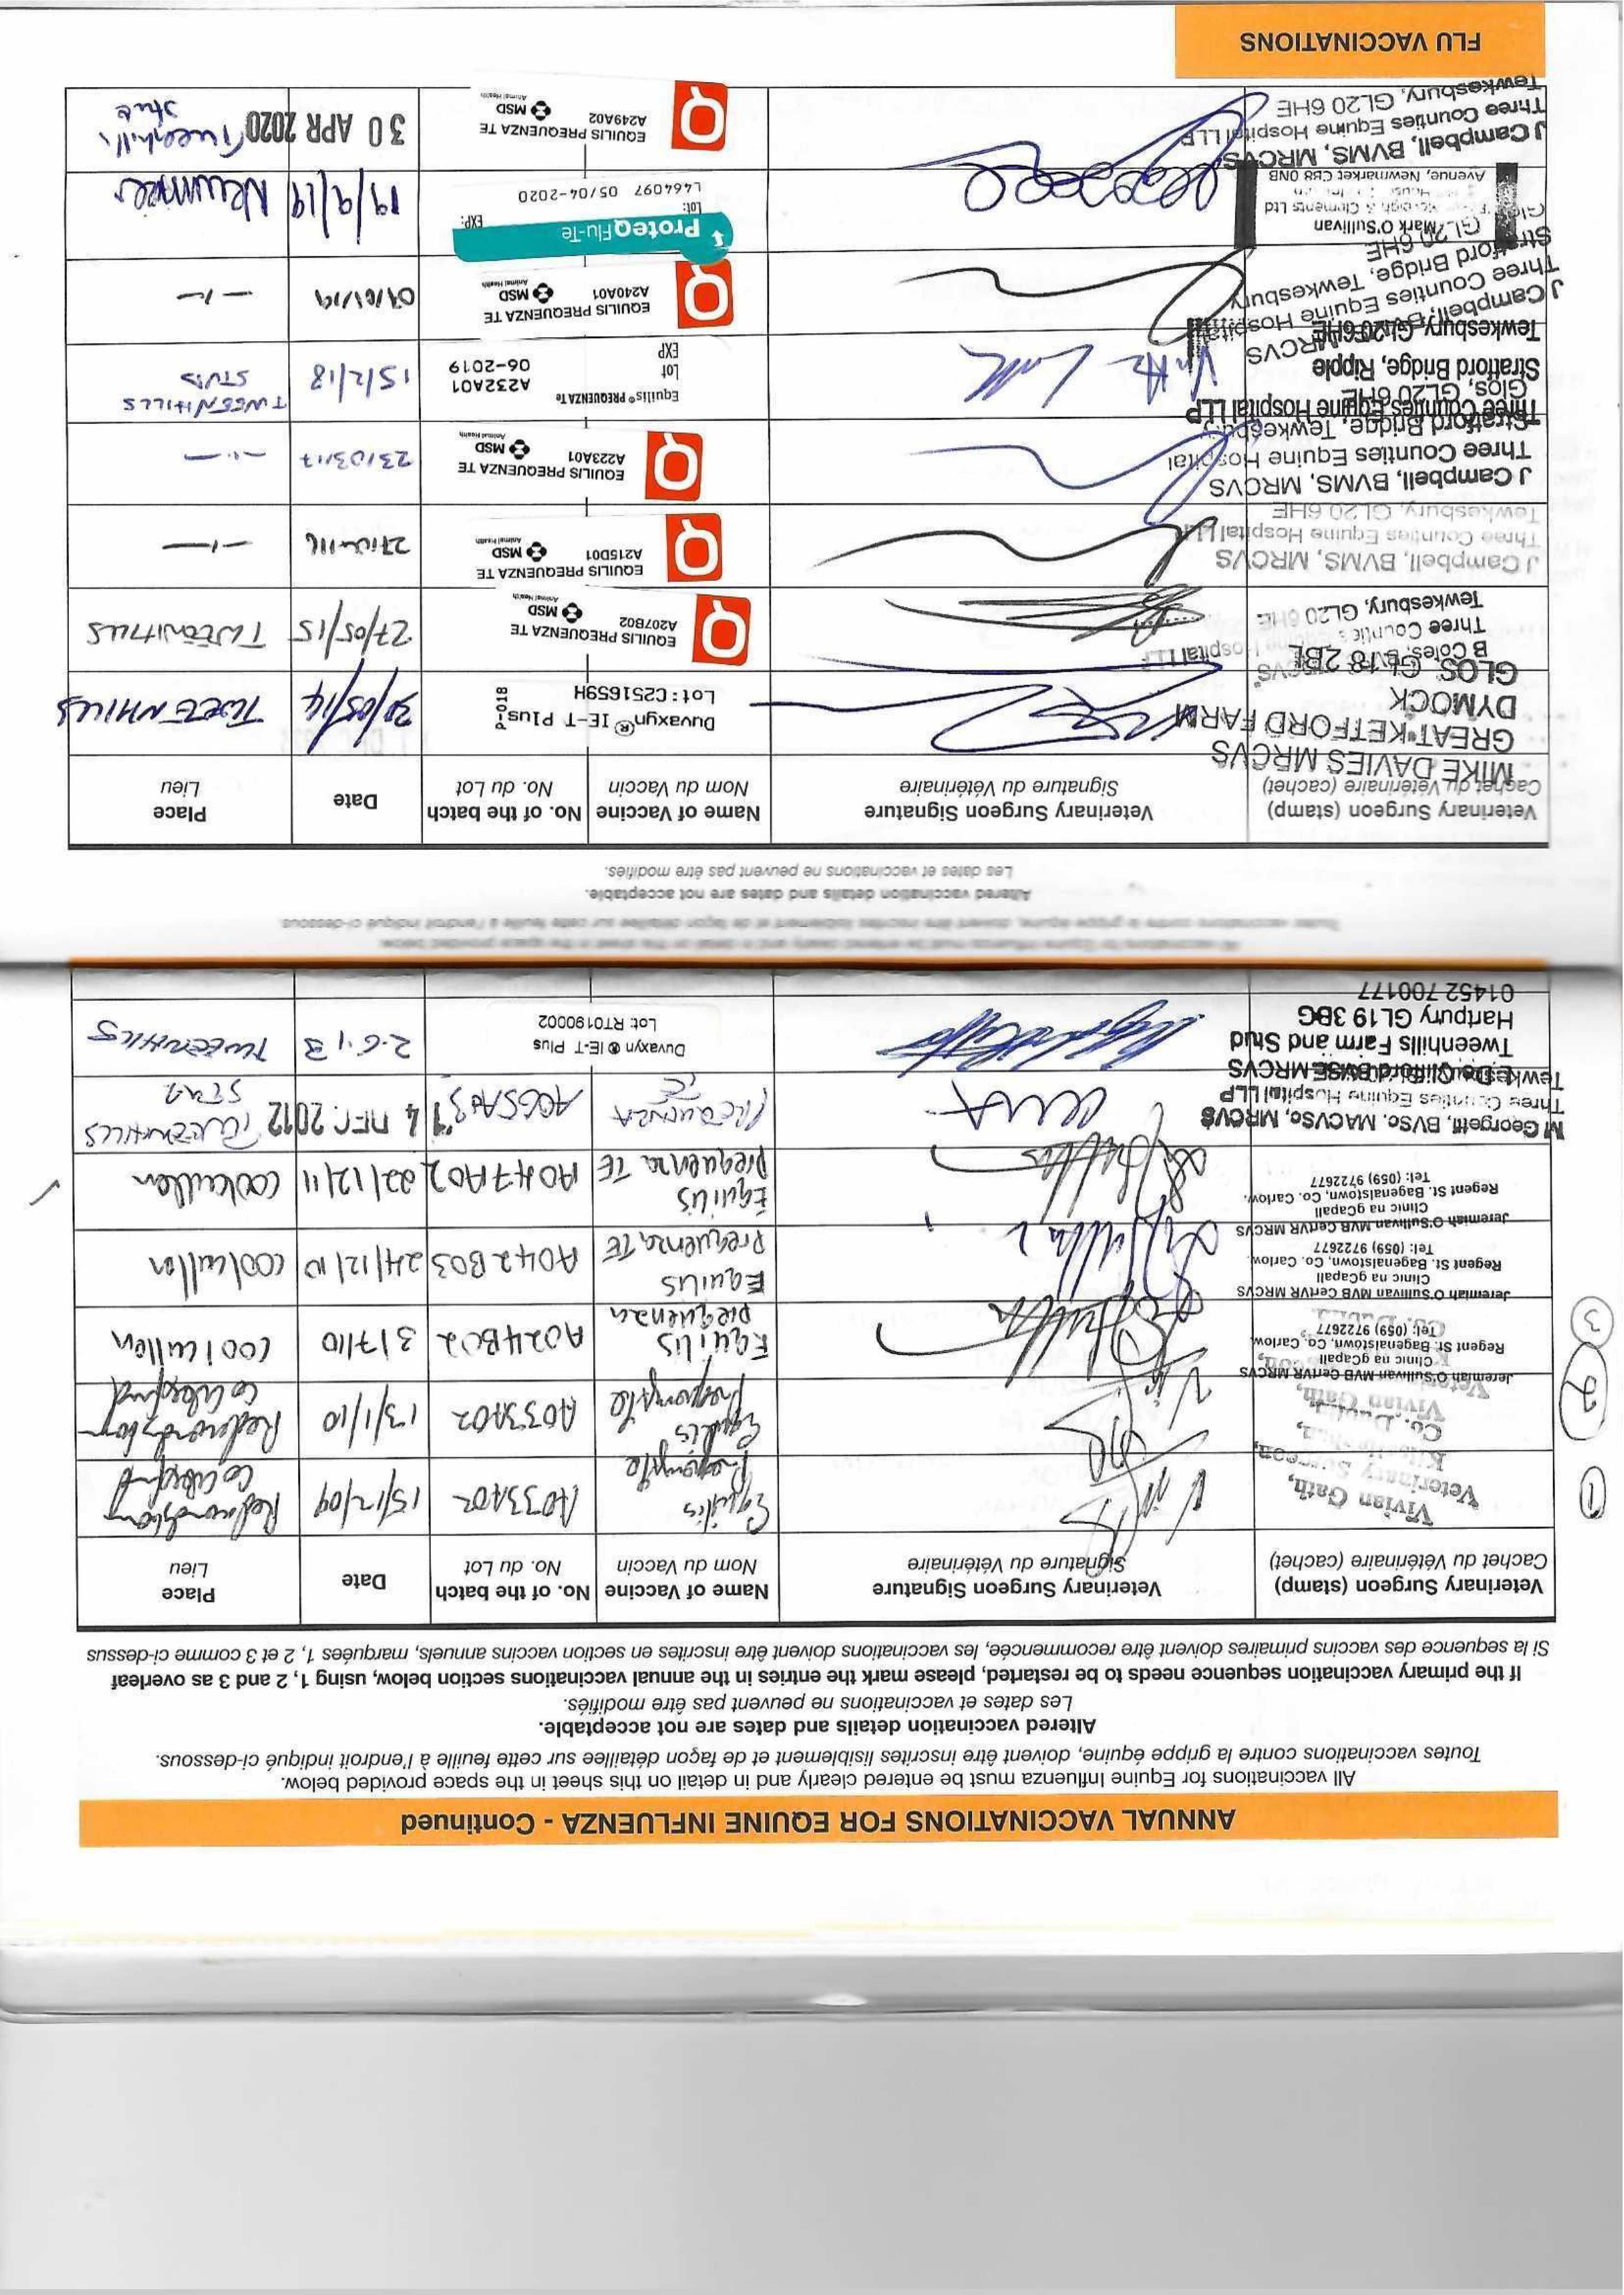 ANNUAL VACCINATIONS FOR EQUINE INFLUENZA - Continued
All vaccinations for Equine Influenza must be entered clearly and in detail on this sheet in the space provided below.
Toutes vaccinations contre la grippe équine, doivent être inscrites lisiblement et de façon détaillee sur cette feuille à l'endroit indiqué ci-dessous.
Altered vaccination details and dates are not acceptable.
Les dates et vaccinations ne peuvent pas être modifiés.
If the primary vaccination sequence needs to be restarted, please mark the entries in the annual vaccinations section below, using 1, 2 and 3 as overleaf
Si la sequence des vaccins primaires doivent être recommencée, les vaccinations doivent être inscrites en section vaccins annuels, marquées 1, 2 et 3 comme ci-dessus
Veterinary Surgeon (stamp) Veterinary Surgeon Signature Name of Vaccine No. of the batch Date Place
Cachet du Vétérinaire (cachet) Signature du Vétérinaire Nom du Vaccin No. du Lot Lieu
1
Vivian Gath,
Veterinary Surgeon,
Equilis
A033A02 15/12/09
2
Vivian Gath,
Co. Dublin
Equilis
A033A02 13/1/10
3
Jeremiah O'Sullivan MVB CertVR MRCVS
Clinic na gCapall
Regent St. Bagenalstown, Co. Carlow.
Tel: (059) 9722677
Equilis
Prequenza
A024B02 3/7/10 Coolcullen
Jeremiah O'Sullivan MVB CertVR MRCVS
Clinic na gCapall
Regent St. Bagenalstown, Co. Carlow.
Tel: (059) 9722677
Equilis
Prequenza TE
A042B03 24/12/10 Coolcullen
Jeremiah O'Sullivan MVB CertVR MRCVS
Clinic na gCapall
Regent St. Bagenalstown, Co. Carlow.
Tel: (059) 9722677
Equilis
Prequenza TE
A047A02 22/12/11 Coolcullen
M Georgetti, BVSc, MACVSc, MRCVS
Three Counties Equine Hospital LLP
Prequenza
TE
14 DEC 2012 Tweenhills
Stud
L De Clifford BVSc MRCVS
Tweenhills Farm and Stud
Hartpury GL19 3BG
01452 700177
Duvaxyn ® IE-T Plus
Lot: RT0190002
2.6.13 Tweenhills
Altered vaccination details and dates are not acceptable.
Les dates et vaccinations ne peuvent pas être modifiés.
Veterinary Surgeon (stamp) Veterinary Surgeon Signature Name of Vaccine No. of the batch Date Place
Cachet du Vétérinaire (cachet) Signature du Vétérinaire Nom du Vaccin No. du Lot Lieu
MIKE DAVIES MRCVS
GREAT KETFORD FARM
DYMOCK
GLOS. GL18 2BL
Duvaxyn® IE-T Plus
Lot: C251659H
P-018
30/05/14 Tweenhills
B Coles, BVSc MRCVS
Three Counties Equine Hospital LLP
Tewkesbury, GL20 6HE
EQUILIS PREQUENZA TE
A207B02
MSD
Animal Health
27/05/15 Tweenhills
J Campbell, BVMS, MRCVS
Three Counties Equine Hospital LLP
Tewkesbury, GL20 6HE
EQUILIS PREQUENZA TE
A215D01
MSD
Animal Health
27/04/16 —"—
J Campbell, BVMS, MRCVS
Three Counties Equine Hospital
Stratford Bridge, Tewkesbury
Glos, GL20 6HE
EQUILIS PREQUENZA TE
A223A01
MSD
Animal Health
23/03/17 —"—
Three Counties Equine Hospital LLP
Stratford Bridge, Ripple
Tewkesbury GL20 6HE
Equilis® PREQUENZA Te
Lot A232A01
EXP 06-2019
15/2/18 Tweenhills
Stud
J Campbell, BVMS, MRCVS
Three Counties Equine Hospital
Stratford Bridge, Tewkesbury
GL20 6HE
EQUILIS PREQUENZA TE
A240A01
MSD
Animal Health
—"—
Mark O'Sullivan
Clements Ltd
Avenue, Newmarket CB8 0NB
ProteqFlu-Te
Lot: EXP:
L464097 05/04-2020
19/9/19 Newmarket
J Campbell, BVMS, MRCVS
Three Counties Equine Hospital LLP
Tewkesbury, GL20 6HE
EQUILIS PREQUENZA TE
A249A02
MSD
Animal Health
30 APR 2020 Tweenhills
Stud
FLU VACCINATIONS